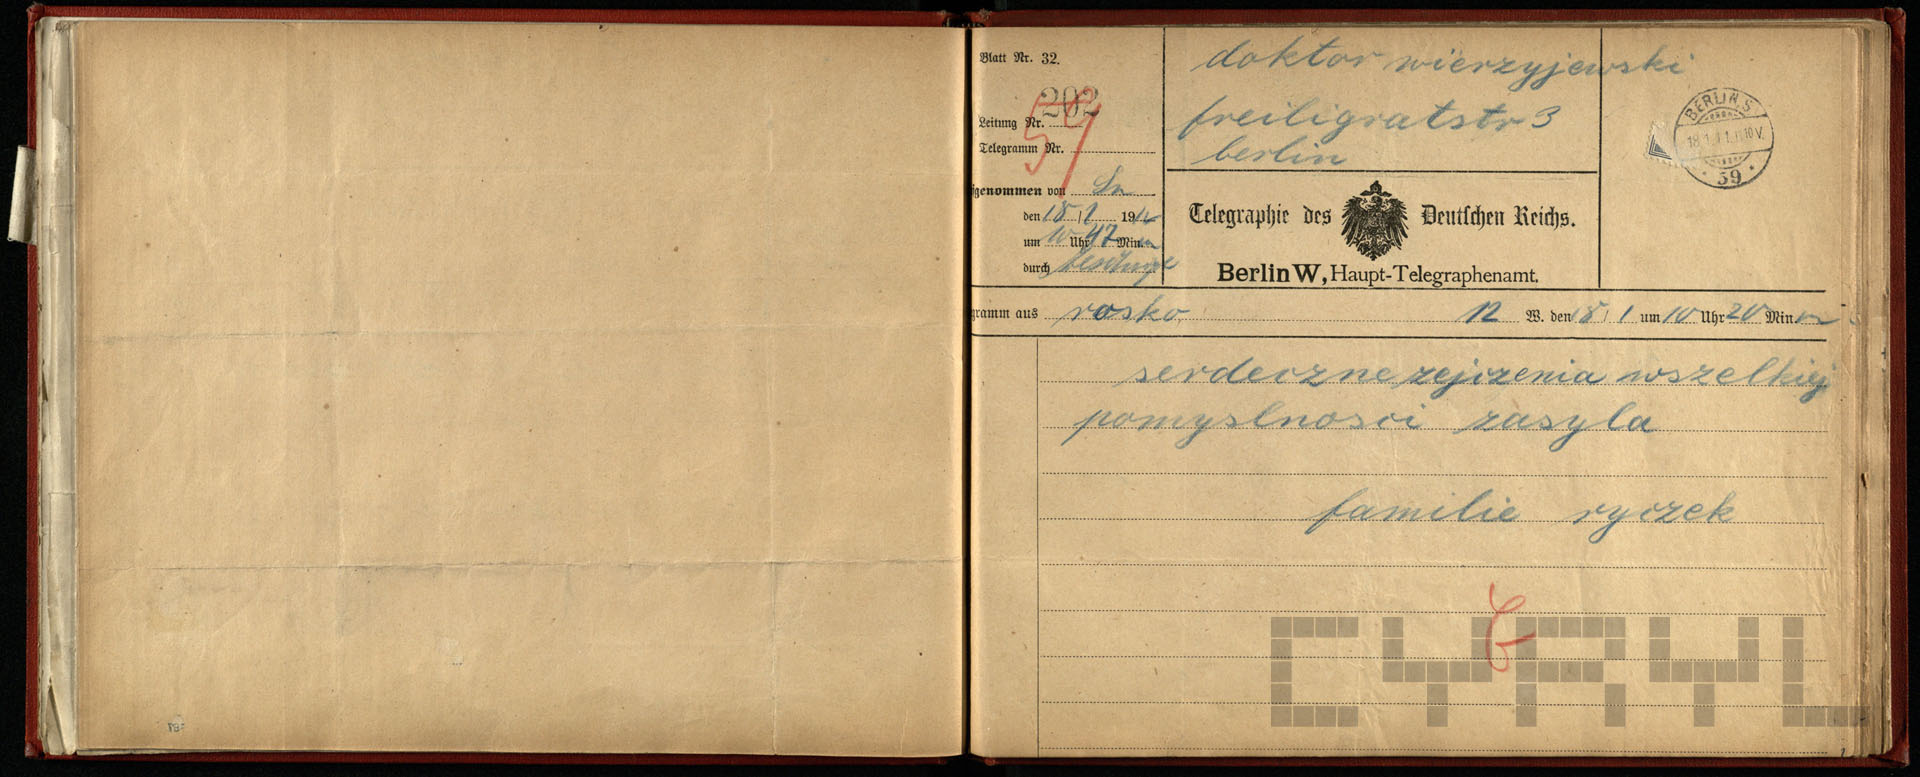 Blatt Nr. 32.
202
Leitung Nr.
Telegramm Nr.
genommen von
den 18/1 19
um 10 Uhr 47 Min.
durch
doktor wierzyjewski
freiligratstr 3
berlin
BERLIN.S.
59
Telegraphie des Deutschen Reichs.
Berlin W, Haupt-Telegraphenamt.
gramm aus rosko 12 W. den 18/1 um 10 Uhr 20 Min
serdeczne zejczenia wszelkiej
pomyslnosci zasyla
familie ryczek
CYRYL